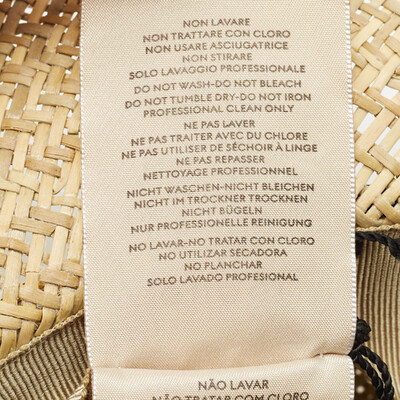 NON LAVARE
NON TRATTARE CON CLORO
NON USARE ASCIUGATRICE
NON STIRARE
SOLO LAVAGGIO PROFESSIONALE
DO NOT WASH-DO NOT BLEACH
DO NOT TUMBLE DRY-DO NOT IRON
PROFESSIONAL CLEAN ONLY
NE PAS LAVER
NE PAS TRAITER AVEC DU CHLORE
NE PAS UTILISER DE SÉCHOIR À LINGE
NE PAS REPASSER
NETTOYAGE PROFESSIONNEL
NICHT WASCHEN-NICHT BLEICHEN
NICHT IM TROCKNER TROCKNEN
NICHT BÜGELN
NUR PROFESSIONELLE REINIGUNG
NO LAVAR-NO TRATAR CON CLORO
NO UTILIZAR SECADORA
NO PLANCHAR
SOLO LAVADO PROFESIONAL
NÃO LAVAR
NÃO TRATAR COM CLORO